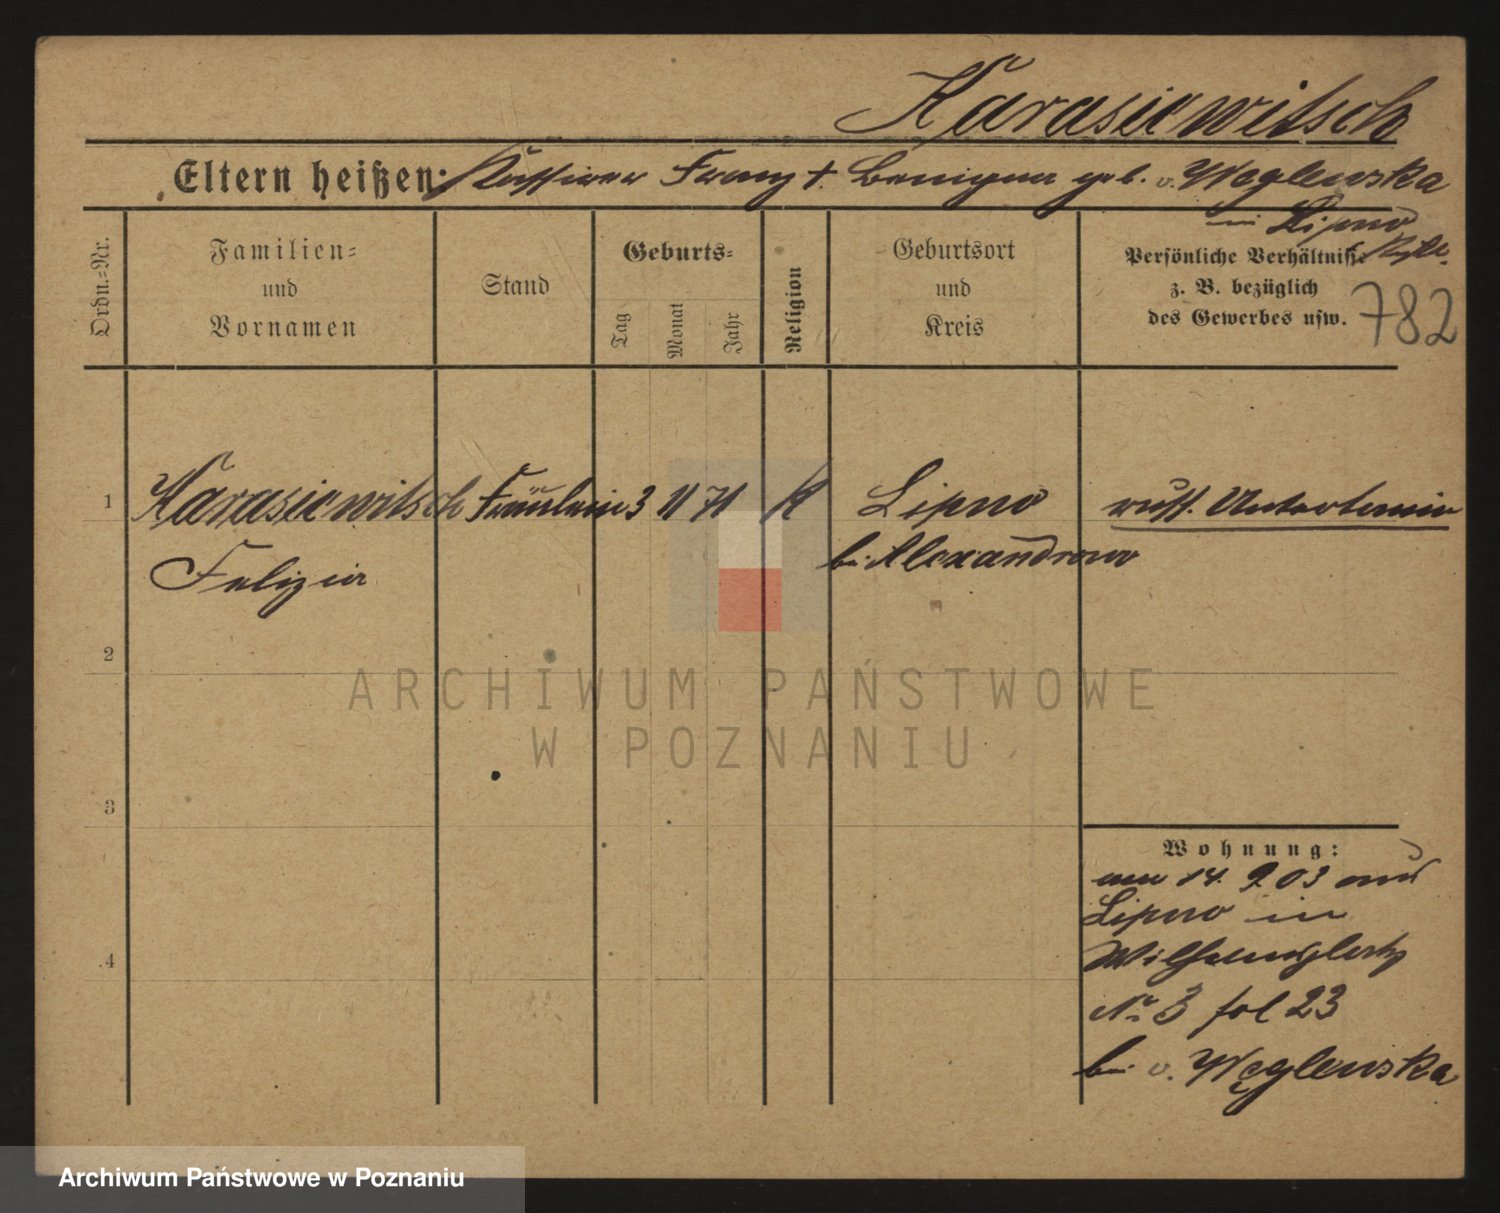 Karasiewitsch
Eltern heißen: Kassirer Franz †. Benigna geb. v. Węglewska
in Lipno
Ordn.-Nr.
Familien-
und
Vornamen
Stand
Geburts-
Tag
Monat
Jahr
Religion
Geburtsort
und
Kreis
Persönliche Verhältnisse
z. B. bezüglich
des Gewerbes usw.
782
1 Karasiewitsch Fräulein 3 11 71 K Lipno russ. Unterthanin
Felizia bei Alexandrowo
2
3
4
Wohnung:
am 14. 9 03 aus
Lipno in
Wilhelmsplatz
No 3 fol 23
bei v. Węglewska
ARCHIWUM PAŃSTWOWE
W POZNANIU
Archiwum Państwowe w Poznaniu